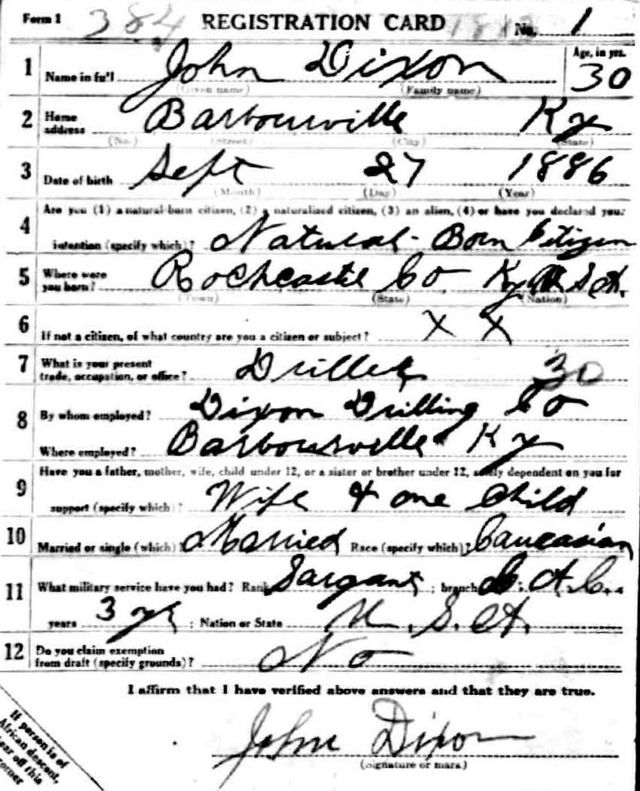 Form 1 384 REGISTRATION CARD No. 1
1 Name in full John Dixon Age, in yrs. 30
(Given name) (Family name)
2 Home address Barbourville Ky
(No.) (Street) (City) (State)
3 Date of birth Sept 27 1886
(Month) (Day) (Year)
4 Are you (1) a natural-born citizen, (2) a naturalized citizen, (3) an alien, (4) or have you declared your
intention (specify which)? Natural-Born Citizen
5 Where were you born? Rockcastle Co Ky U.S.A.
(Town) (State) (Nation)
6 If not a citizen, of what country are you a citizen or subject? X X
7 What is your present
trade, occupation, or office? Driller 30
8 By whom employed? Dixon Drilling Co
Where employed? Barbourville Ky
9 Have you a father, mother, wife, child under 12, or a sister or brother under 12, solely dependent on you for
support (specify which)? Wife & one Child
10 Married or single (which) Married Race (specify which)? Caucasian
11 What military service have you had? Rank Sargant ; branch C.A.C. ;
years 3 yrs ; Nation or State U.S.A.
12 Do you claim exemption
from draft (specify grounds)? No
I affirm that I have verified above answers and that they are true.
John Dixon
(Signature or mark)
If person is of
African descent,
tear off this
corner